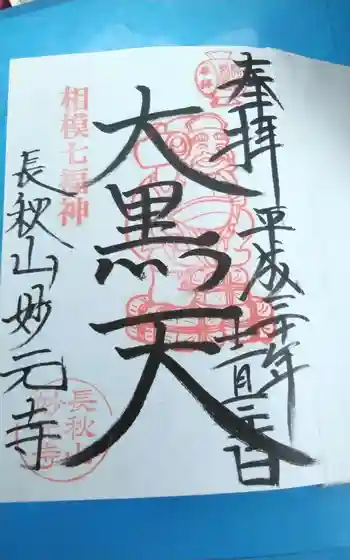 奉拝
平成三十年
十一月三日
大黒天
相模七福神
長秋山妙元寺
長秋山
妙元寺